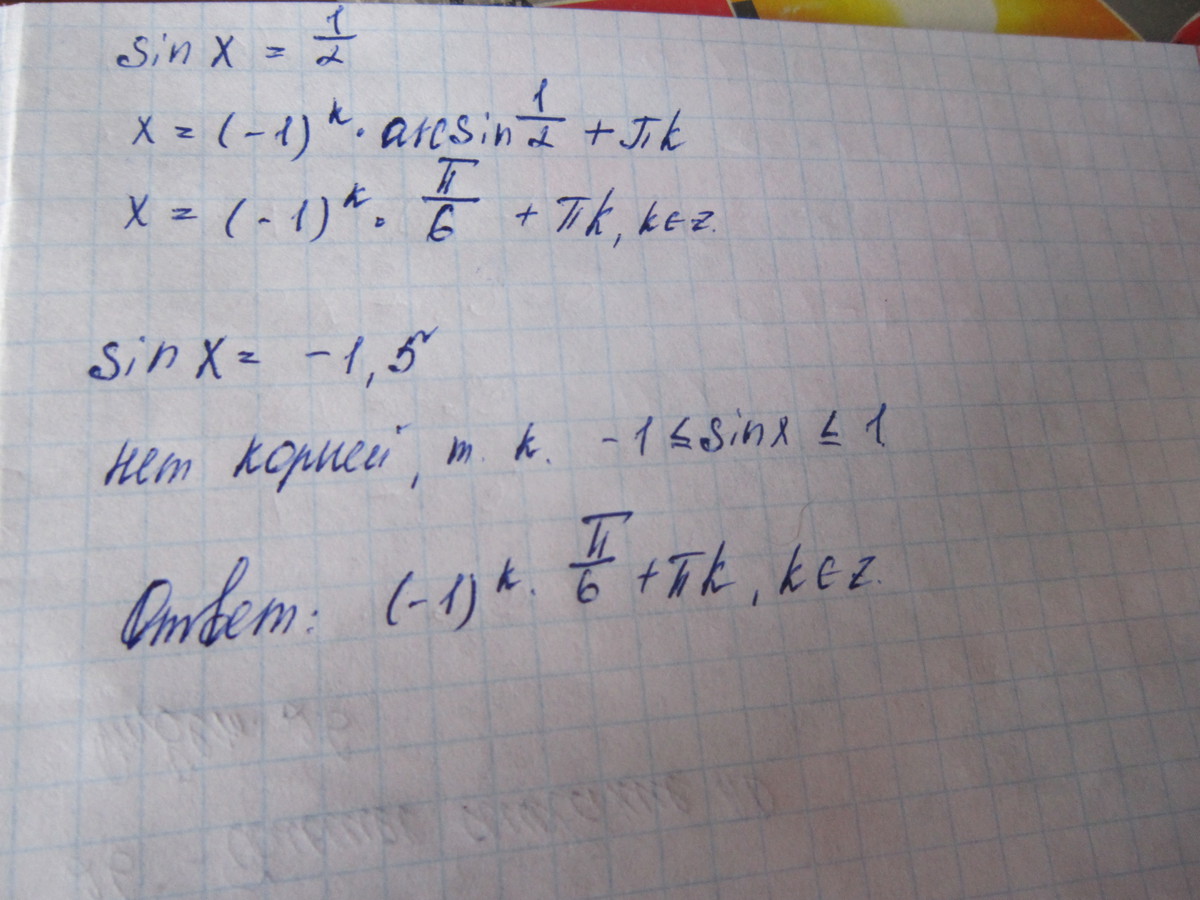 sin x = 1/2
x = (-1)^k · arcsin 1/2 + πk
x = (-1)^k · π/6 + πk, k∈z.
sin x = -1,5
нет корней, т. к. -1 ≤ sin x ≤ 1
Ответ: (-1)^k · π/6 + πk, k∈z.